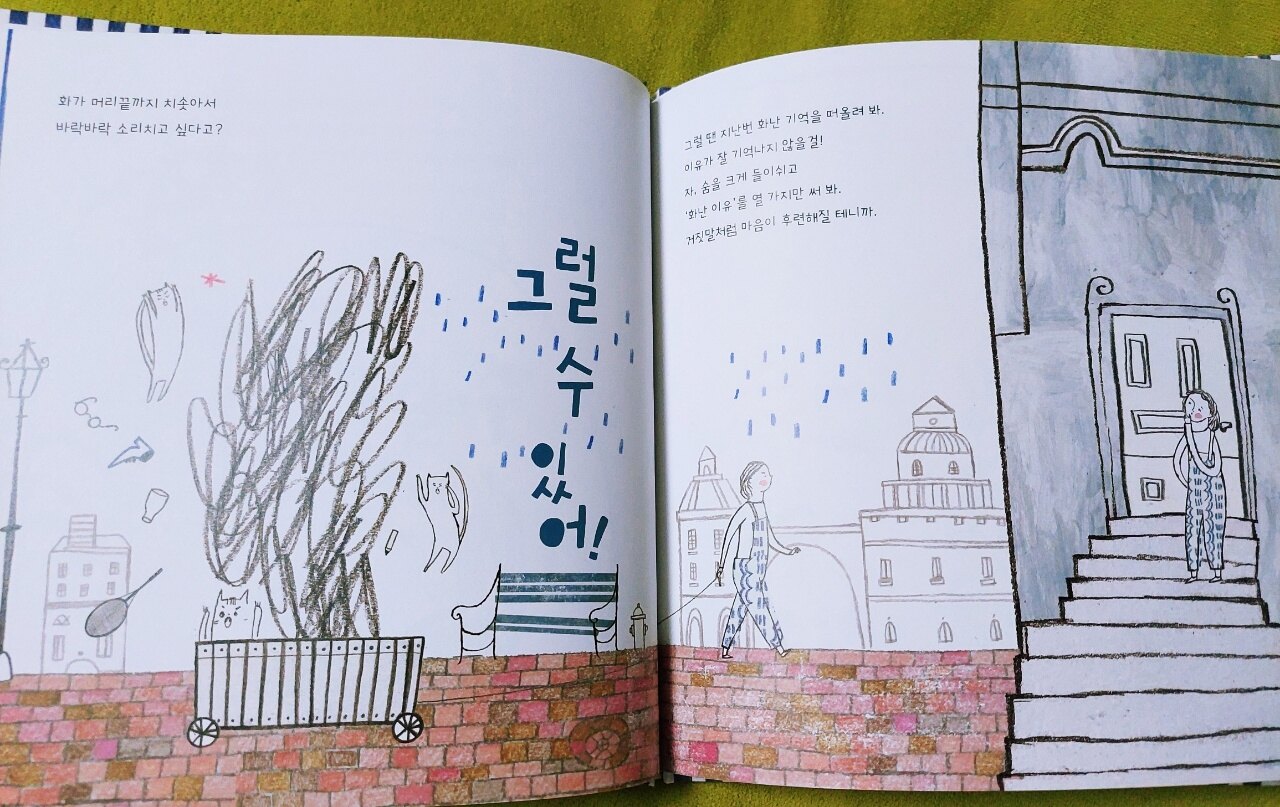 화가 머리끝까지 치솟아서
바락바락 소리치고 싶다고?
그럴
수
있
어!
그럴 땐 지난번 화난 기억을 떠올려 봐.
이유가 잘 기억나지 않을걸!
자, 숨을 크게 들이쉬고
'화난 이유'를 열 가지만 써 봐.
거짓말처럼 마음이 후련해질 테니까.